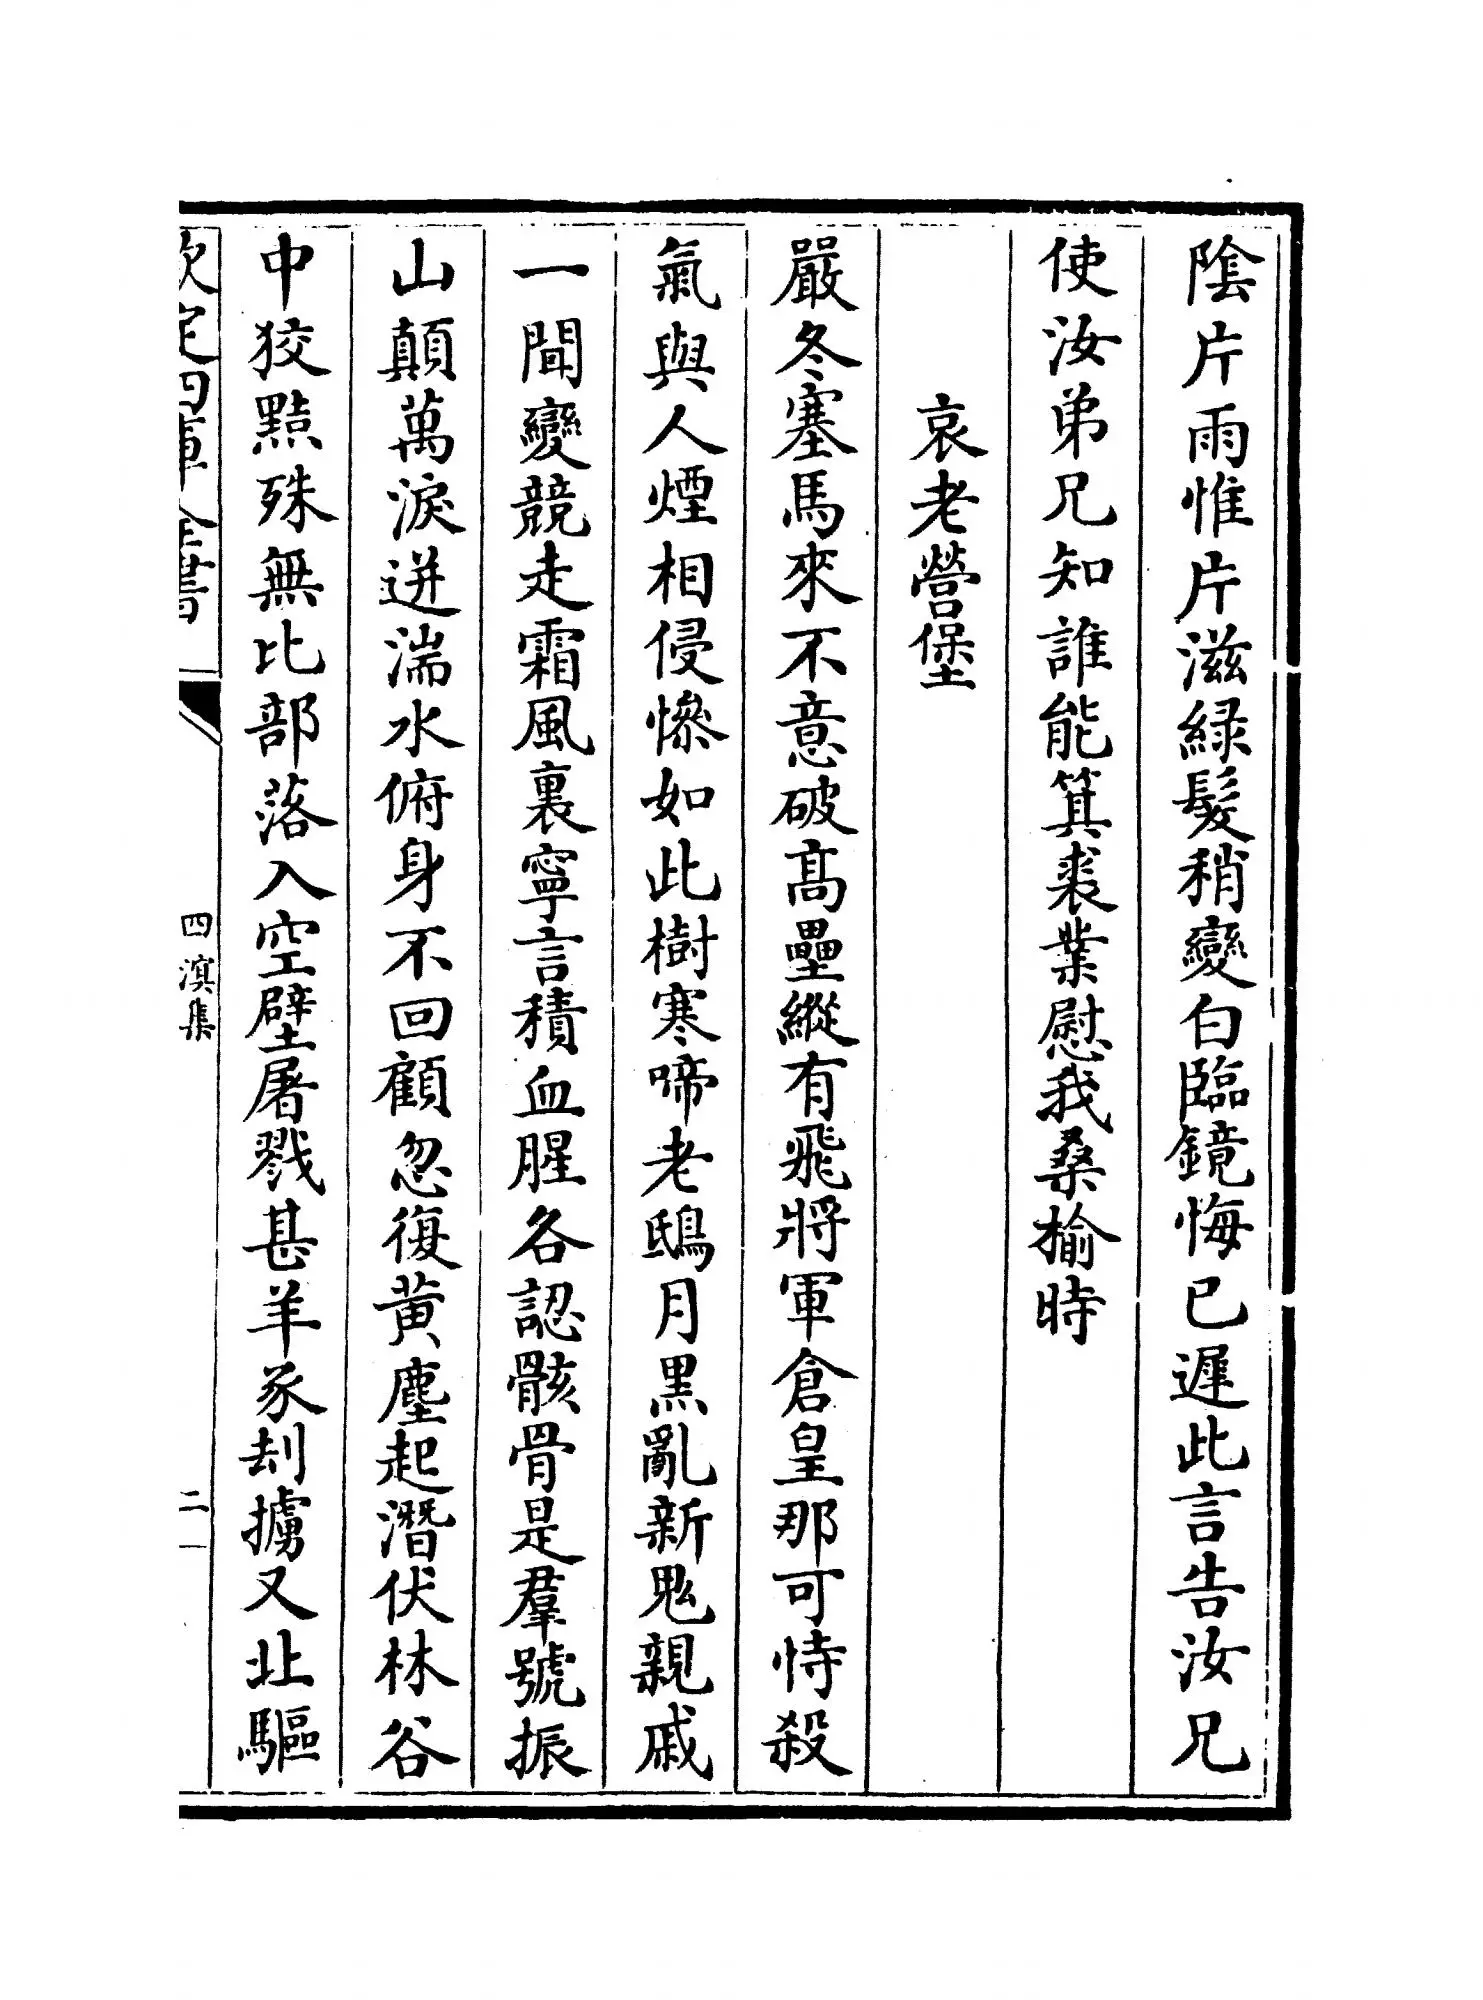 陰片雨惟片片滋緑髮稍變白臨鏡悔已遲此言告汝兄
使汝弟兄知誰能箕裘業慰我桑榆時
哀老營堡
嚴冬塞馬來不意破髙壘縱有飛將軍倉皇那可恃殺
氣與人煙相侵慘如此樹寒啼老鴟月黒亂新鬼親戚
一間變競走霜風裏寧言積血腥各認骸骨是羣號振
山顛萬淚迸湍水俯身不回顧忽復黄塵起潛伏林谷
中狡㸃殊無比部落入空壁屠戮甚羊豕刦擄又北驅
欽定四庫全書
四溟集
二